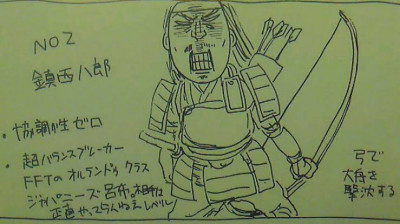 NO2
鎮西八郎
・協調性ゼロ
・超バランスブレーカー
FFTのオルランドゥクラス
ジャパニーズ呂布。相手は
正直やってらんねーレベル
弓で
大舟を
撃沈する